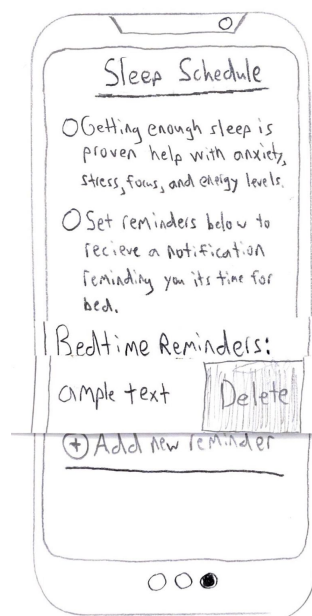 Sleep Schedule
Getting enough sleep is
proven help with anxiety,
stress, focus, and energy levels.
Set reminders below to
recieve a notification
reminding you its time for
bed.
Bedtime Reminders:
ample text Delete
+ Add new reminder